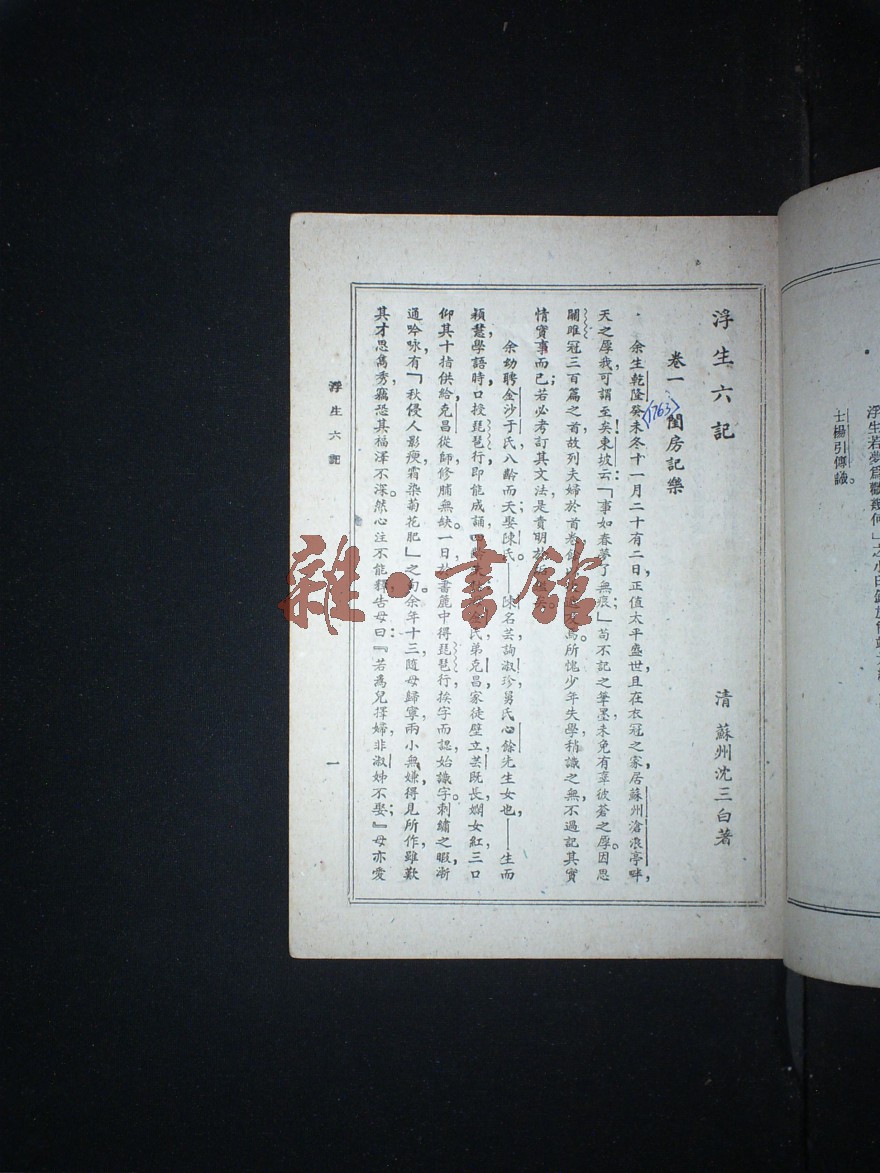 浮生若夢爲歡幾何」之小
士楊引傳識。
浮生六記
清 蘇州沈三白著
卷一 閨房記樂
(1763)
余生乾隆癸未冬十一月二十有二日，正值太平盛世，且在衣冠之家，居蘇州滄浪亭畔，
天之厚我，可謂至矣。東坡云：「事如春夢了無痕」；苟不記之筆墨，未免有辜彼蒼之厚。因思
關雎冠三百篇之首，故列夫婦於首卷，焉。所愧少年失學，稍識之無，不過記其實
情實事而已；若必考訂其文法，是責明
余幼聘金沙于氏，八齡而夭；娶陳氏。——陳名芸，詢淑珍，舅氏心餘先生女也，——生而
穎慧，學語時，口授琵琶行，即能成誦。氏，弟克昌，家徒壁立。芸既長，嫻女紅，三口
仰其十指供給，克昌從師修脯無缺。一日，於書簏中得琵琶行，挨字而認，始識字；刺繡之暇，漸
通吟咏，有「秋侵人影瘦，霜染菊花肥」之句。余年十三，隨母歸寧，兩小無嫌，得見所作，雖歎
其才思雋秀，竊恐其福澤不深。然心注不能釋，告母曰：『若爲兒擇婦，非淑姊不娶；』母亦愛
浮生六記
一
雜·書館